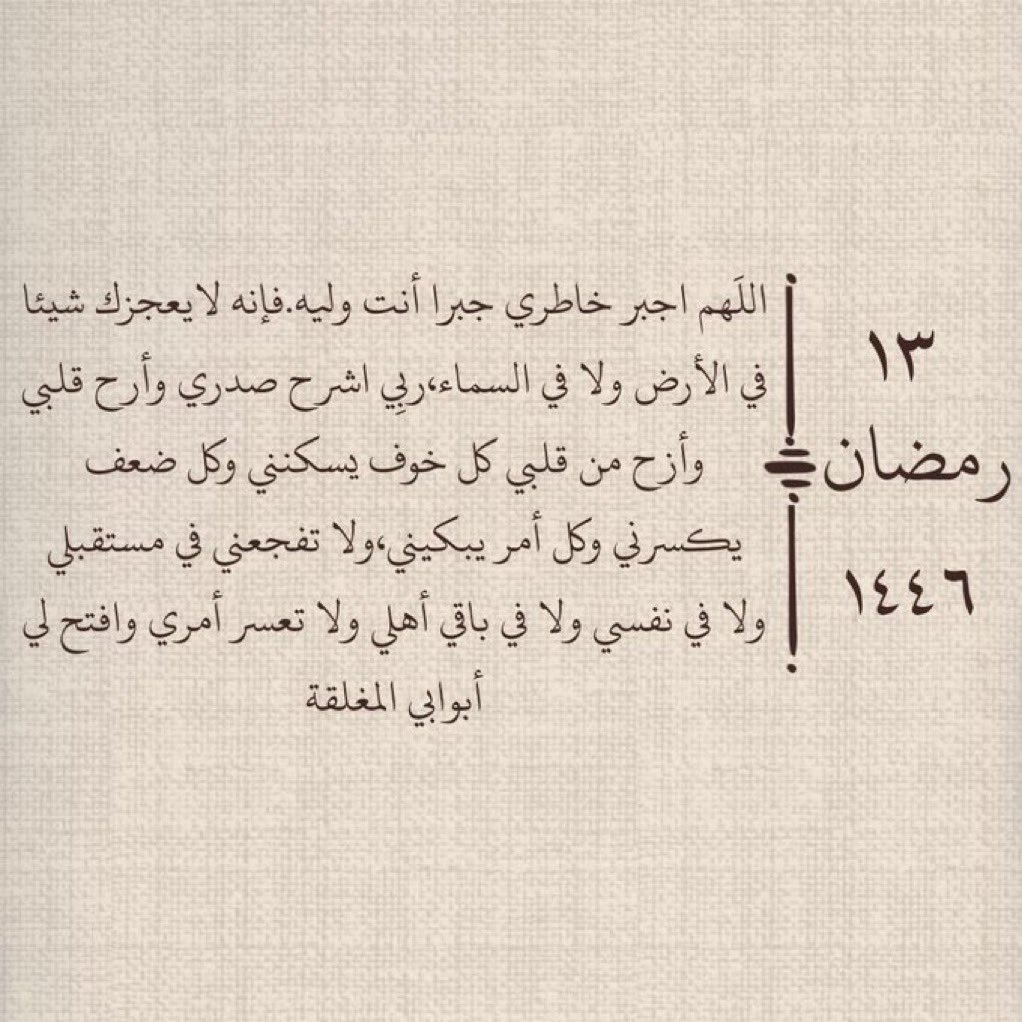 ١٣
رمضان
١٤٤٦
اللَهم اجبر خاطري جبرا أنت وليه.فإنه لايعجزك شيئا
في الأرض ولا في السماء،ربِي اشرح صدري وأرح قلبي
وأزح من قلبي كل خوف يسكنني وكل ضعف
يكسرني وكل أمر يبكيني،ولا تفجعني في مستقبلي
ولا في نفسي ولا في باقي أهلي ولا تعسر أمري وافتح لي
أبوابي المغلقة